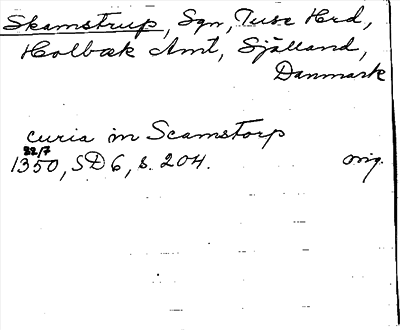 Skamstrup, Sgn, Tuse Hrd,
Holbæk Amt, Sjælland,
Danmark
curia in Scamstorp
22/7
1350, SD 6, s. 204. orig.